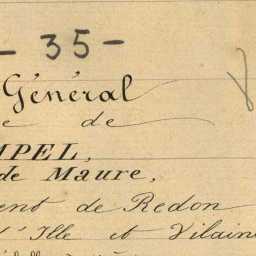 - 35 -
Général
de
MPEL,
de Maure,
ent de Redon
l'Ille et Vilaine